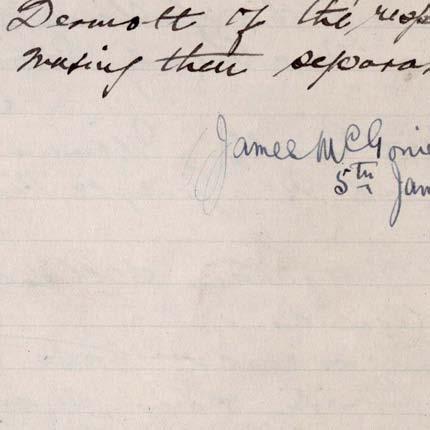 Dermott of the resp
making their separa
James McGonie
5th Jan